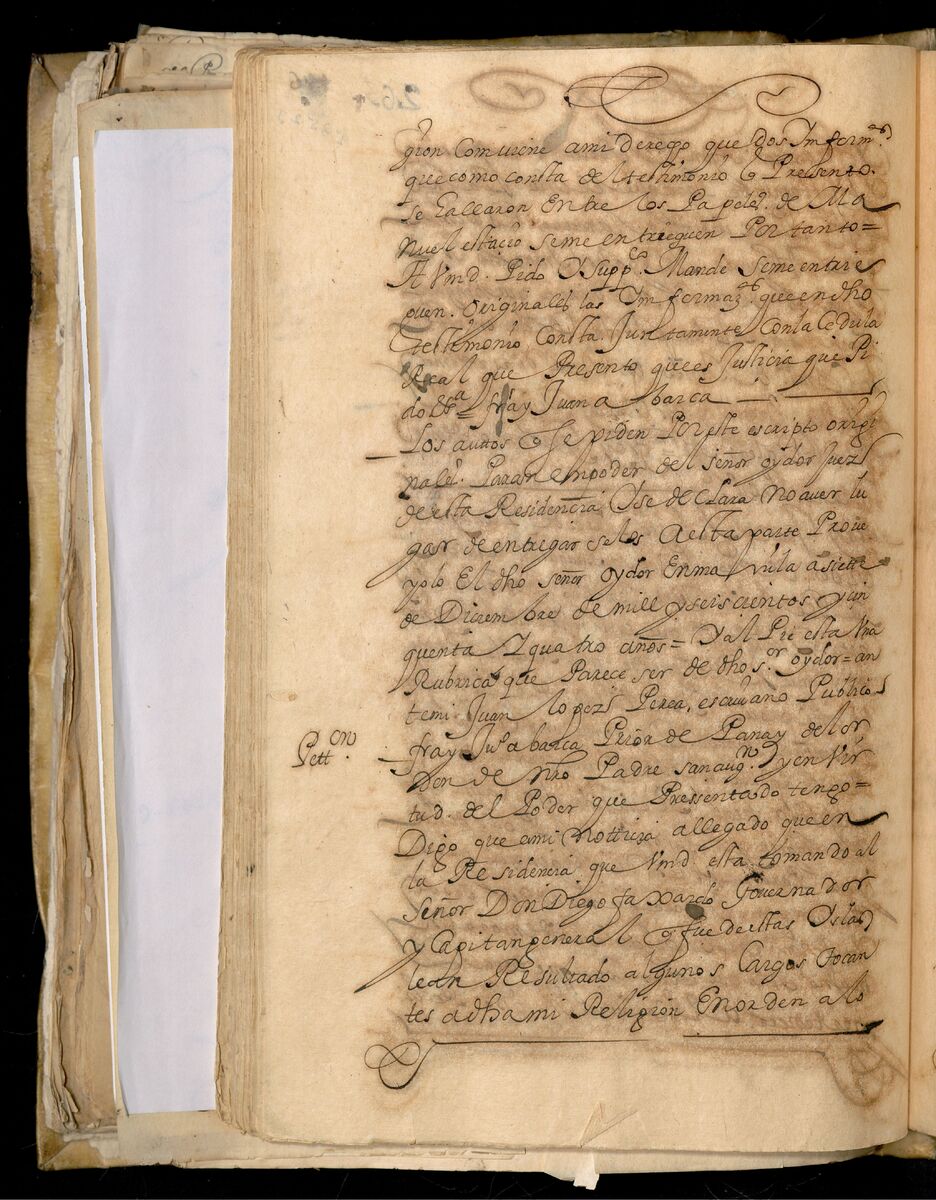 gion combiene ami derecho que dos Ynform.es
que como consta del testimonio q Pressento.
se hallaron Entre los Papeles. de Ma
nuel estaçio seme entreguen Por tanto=
A Vmd. Pido Y supp.co Mande seme entrie
guen. originales las Ynformaz.s que en dho
testimonio Consta. Juntamente Con la Cedula
Real que Presento que es Justicia que Pi
do &a= fray Juan a barca
Los auttos q Se piden Por este escripto origi
nales. Paran en poder del señor oydor Juez
de esta Residencia Y se declara no aver lu
gar de entregar se los A esta parte Prove
yolo El dho señor oydor En manila a siette
de Diciembre de mill y seis cientos y cin
quenta Y quatro años= Y al Pie esta Vna
Rubrica que Parece ser de dho s.or oydor= an
temi Juan lopez Perea, escriuano Publico
Pett.on
fray Ju.o a barca Prior de Panay del or
den de nro Padre san aug.n y en Vir
tud. del Poder que Pressentado tengo=
Digo que ami Notticia allegado que en
la Residencia que Vmd esta tomando al
Señor Don Diego faxardo Governador
y Capitan general q fue de estas Yslas
lean Resultado algunos Cargos tocan
tes a dha mi Religion En orden a lo